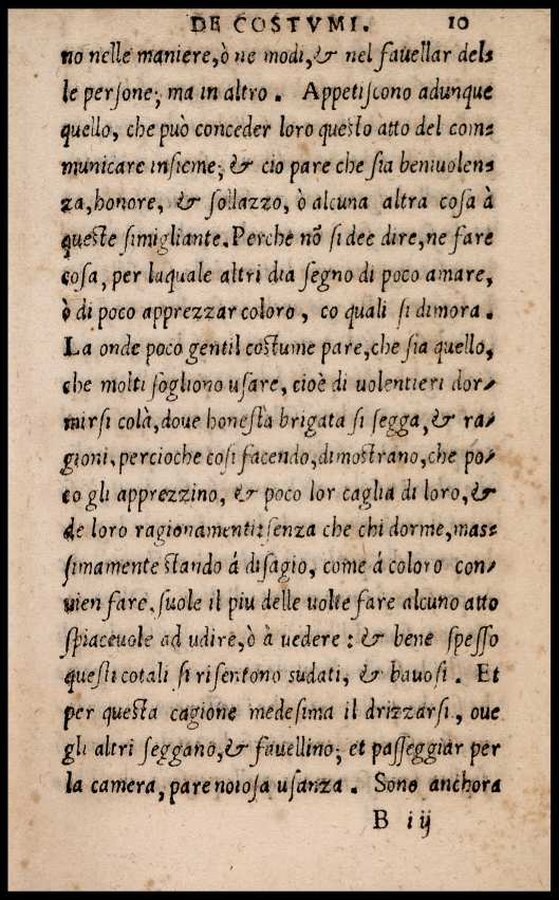 DE COSTVMI. 10
no nelle maniere, ò ne modi, & nel fauellar del⸗
le perſone; ma in altro. Appetiſcono adunque
quello, che può conceder loro queſto atto del com⸗
municare inſieme; & cio pare che ſia beniuolen⸗
za, honore, & ſollazzo, ò alcuna altra coſa à
queſte ſimigliante. Perche nõ ſi dee dire, ne fare
coſa, per laquale altri dia ſegno di poco amare,
ò di poco apprezzar coloro, co quali ſi dimora.
La onde poco gentil coſtume pare, che ſia quello,
che molti ſogliono uſare, cioè di uolentieri dor⸗
mirſi colà, doue honeſta brigata ſi ſegga, & ra⸗
gioni, percioche coſi facendo, dimoſtrano, che po⸗
co gli apprezzino, & poco lor caglia di loro, &
de loro ragionamenti: ſenza che chi dorme, maſ⸗
ſimamente ſtando á diſagio, come á coloro con⸗
uien fare, ſuole il piu delle uolte fare alcuno atto
ſpiaceuole ad udire, ò à uedere: & bene ſpeſſo
queſti cotali ſi riſentono sudati, & bauoſi. Et
per queſta cagione medeſima il drizzarſi, oue
gli altri ſeggano, & fauellino; et paſſeggiar per
la camera, pare noioſa uſanza. Sono anchora
B iij